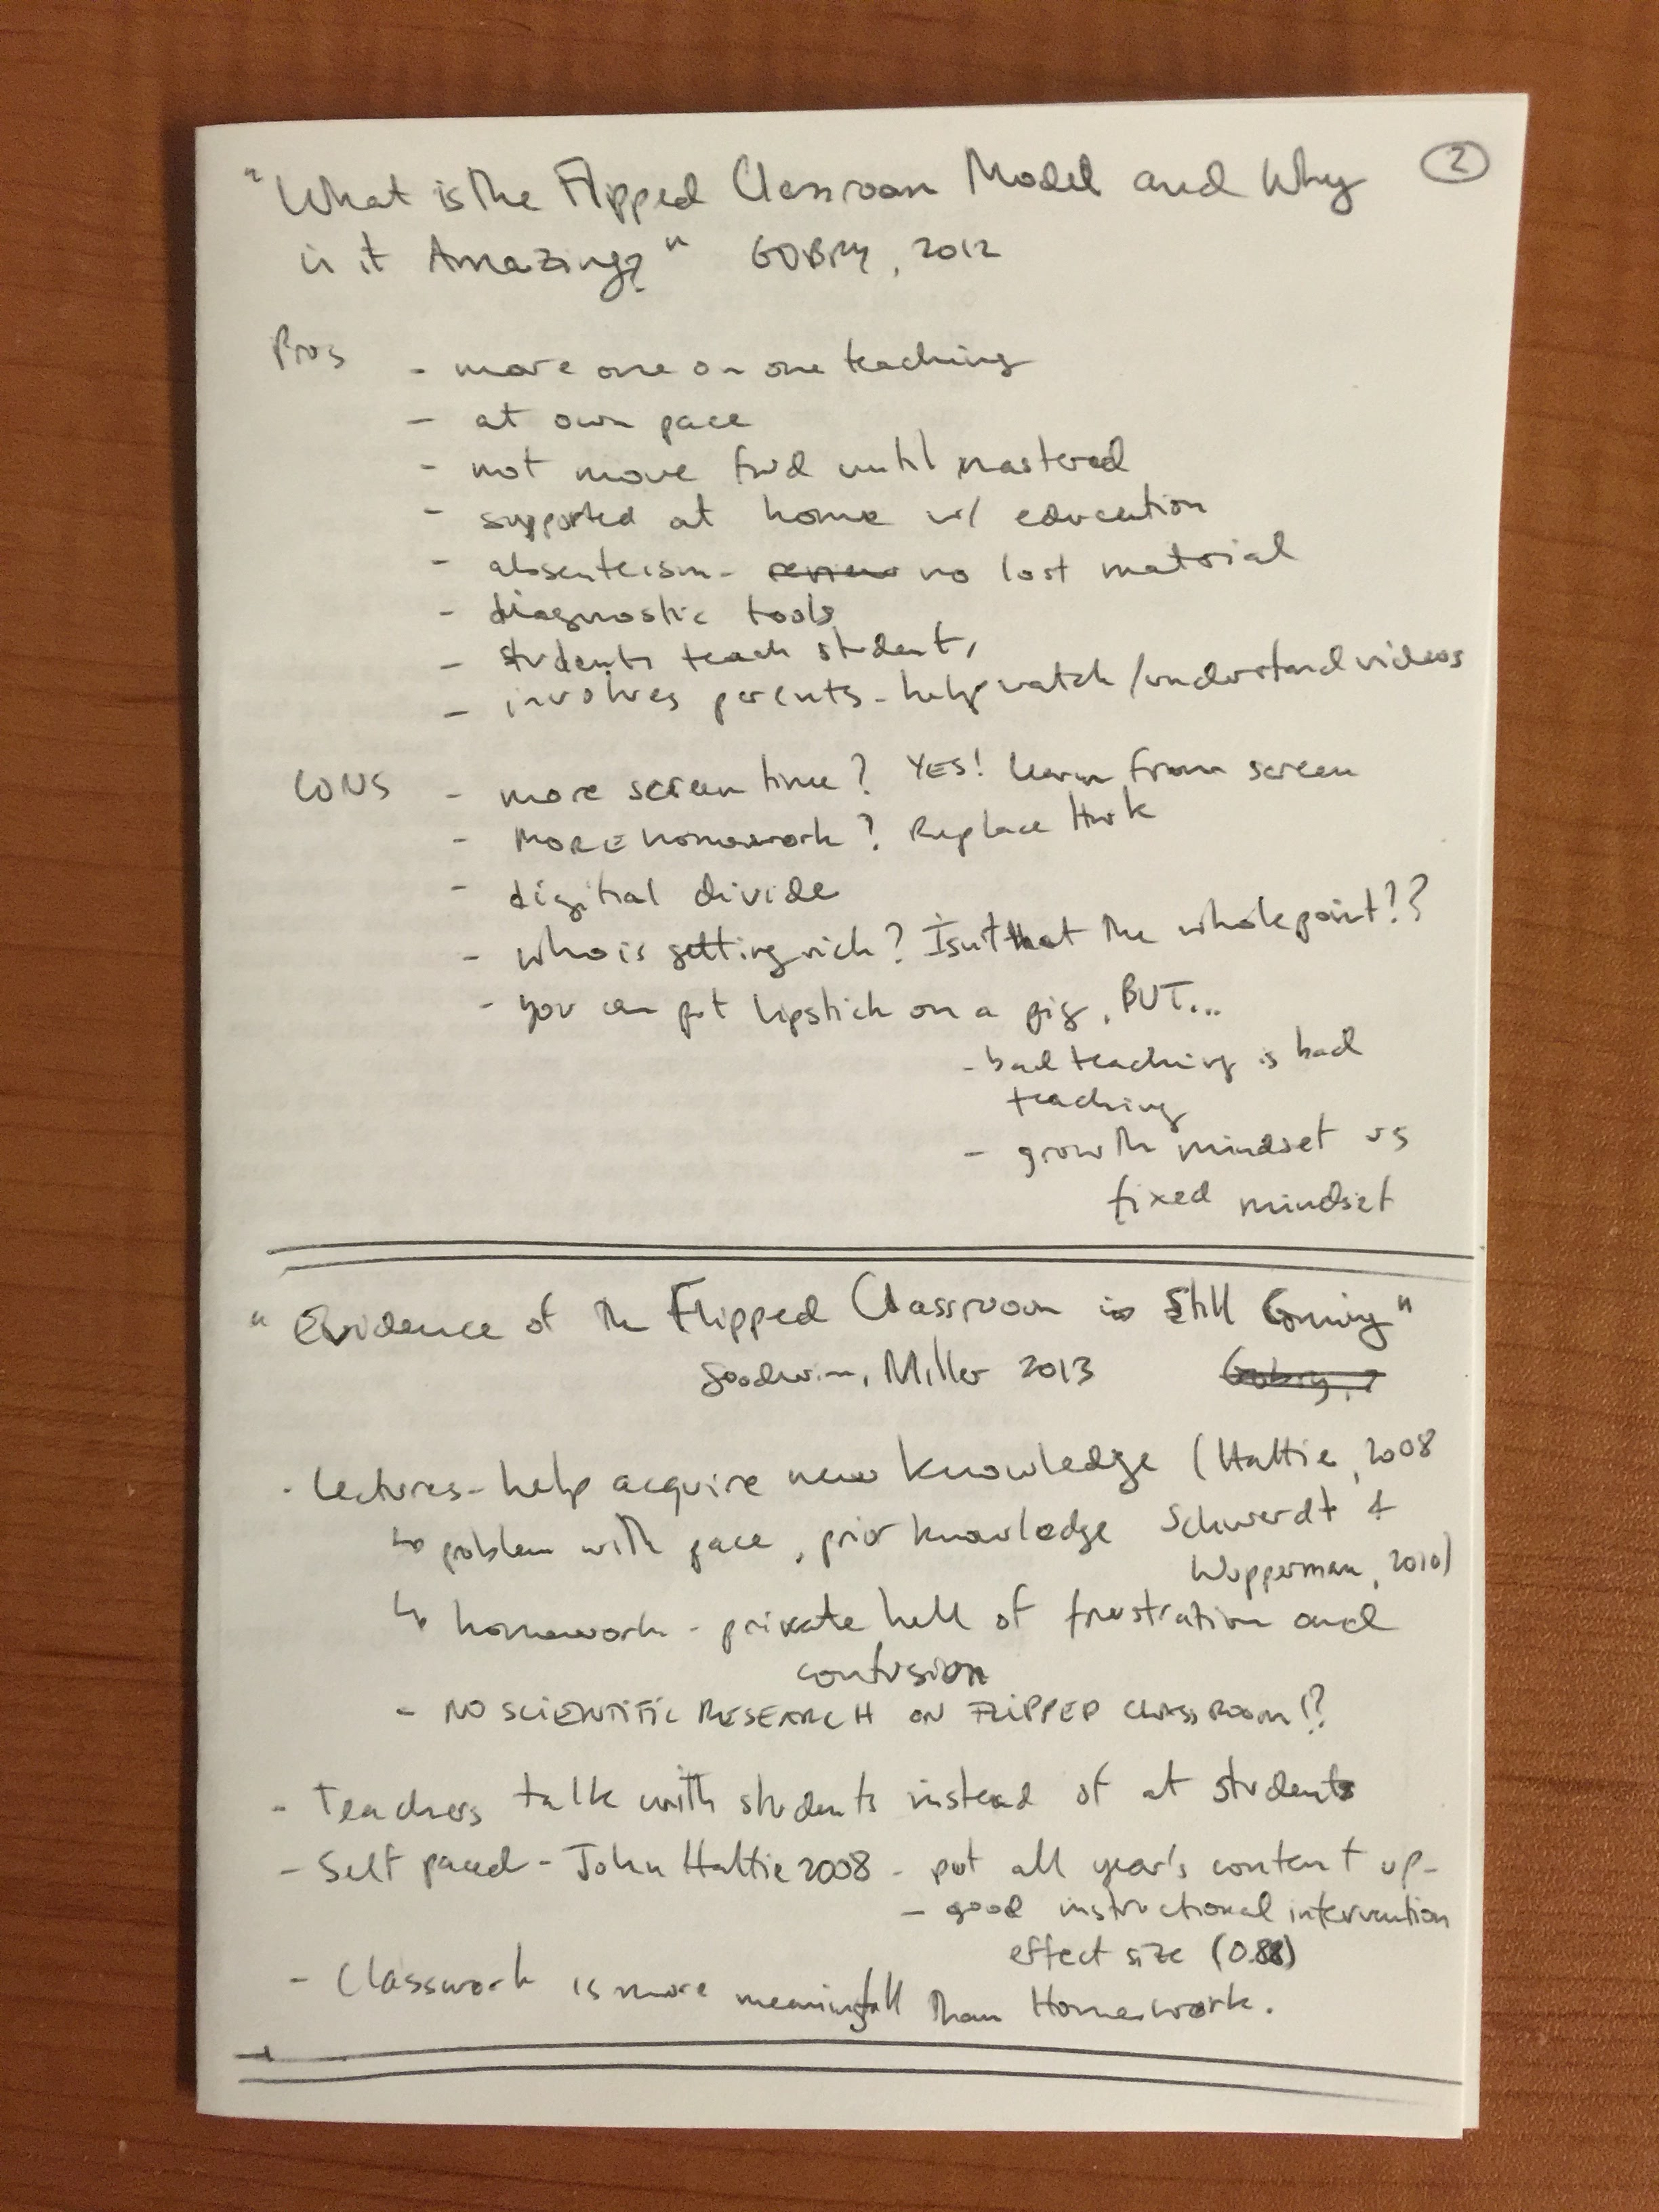 "What is the Flipped Classroom Model and Why ②
is it Amazing?" GOBRY, 2012
Pros - more one on one teaching
- at own pace
- not move fwd until mastered
- supported at home w/ education
- absenteeism - review no lost material
- diagnostic tools
- students teach students
- involves parents - help watch/understand videos
CONS - more screen time? YES! learn from screen
- MORE homework? Replace Hwk
- digitial divide
- who is getting rich? Isn't that the whole point!?
- you can put lipstick on a pig, BUT...
- bad teaching is bad
teaching
- growth mindset vs
fixed mindset
"Evidence of the Flipped Classroom is Still Coming"
Goodwin, Miller 2013 Gobry, ?
- Lectures - help acquire new knowledge (Hattie, 2008
↳ problem with pace, prior knowledge Schwerdt &
Wupperman, 2010)
↳ homework - private hell of frustration and
confusion
- NO SCIENTIFIC RESEARCH ON FLIPPED CLASSROOM!?
- Teachers talk with students instead of at students
- Self paced - John Hattie 2008 - put all year's content up -
- good instructional intervention
effect size (0.88)
- Classwork is more meaningfull than Homework.